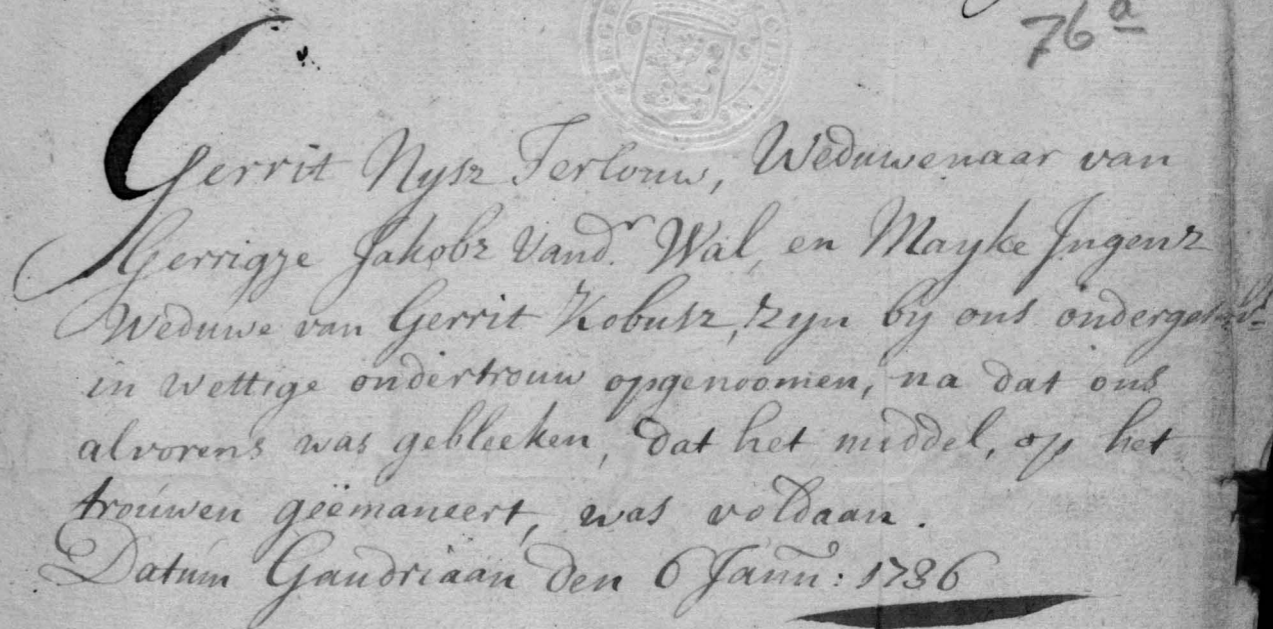 76a
Gerrit Nysz Terlouw, Weduwenaar van
Gerrigje Jakobz Vand.r Wal, en Mayke Ingenz
Weduwe van Gerrit Kobusz, zyn by ons
in wettige ondertrouw opgenoomen, na dat ons
alvorens was gebleeken, dat het middel, op het
trouwen geëmaneert, was voldaan.
Datum Gaudriaan den 6 Jann: 1786